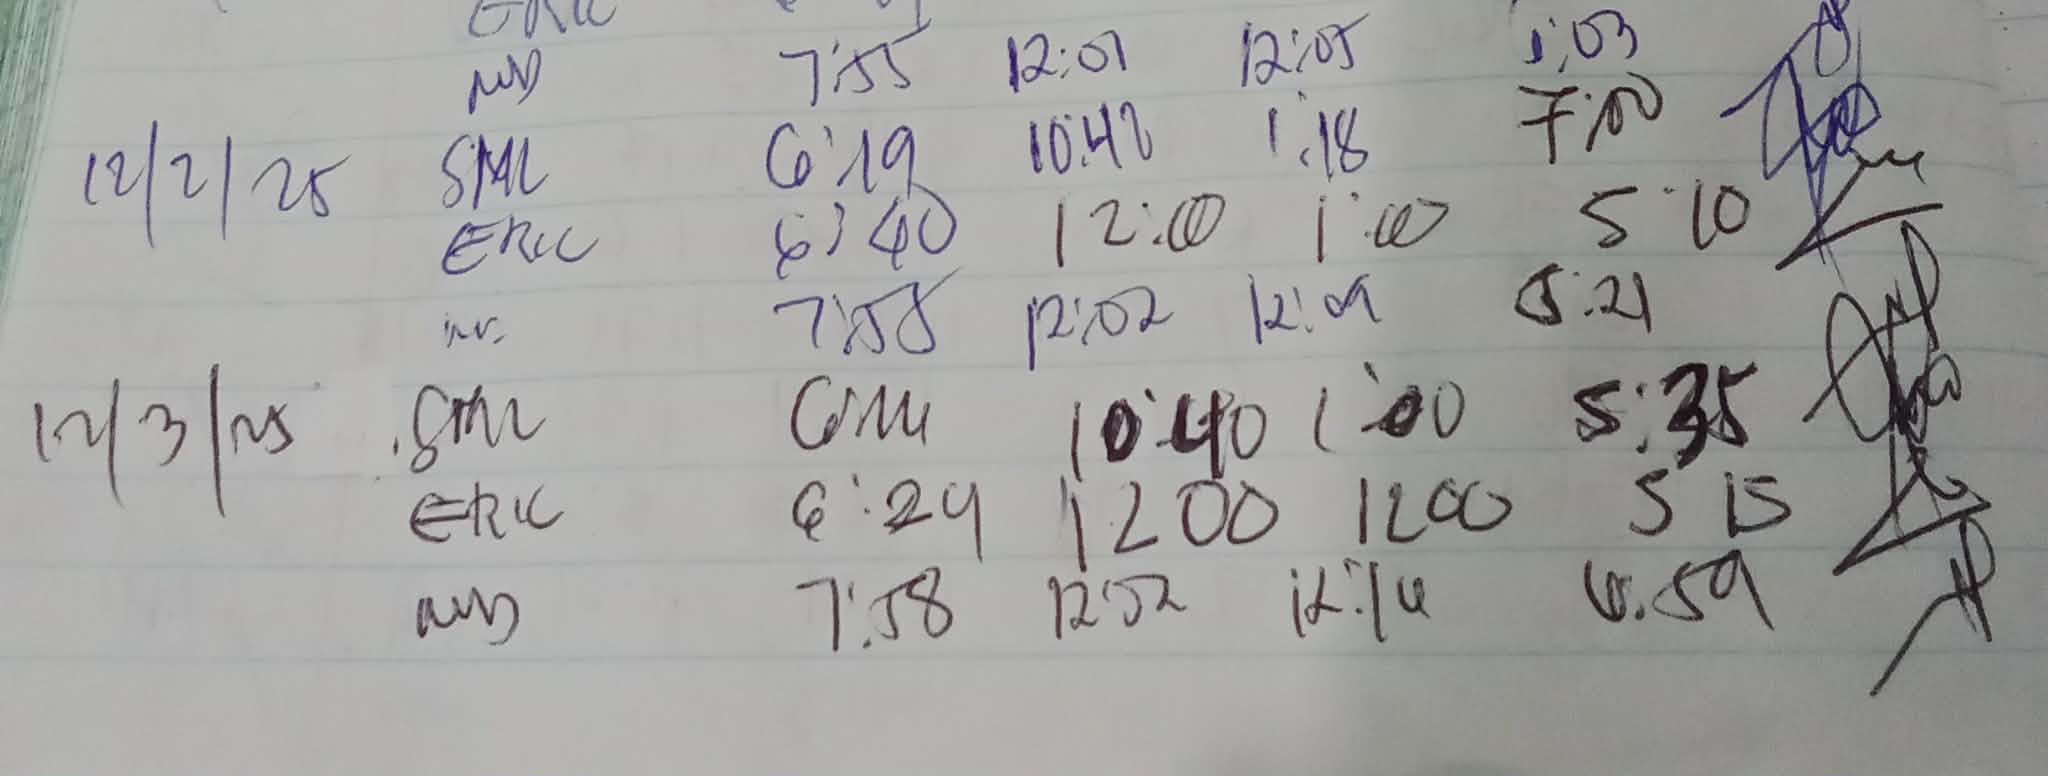 ERIC
7:55 12:01 12:05 5:03
12/2/25 SML 6:19 10:42 1:18 7:00
ERIC 6:40 12:00 1:00 5:10
7:58 12:02 12:09 5:21
12/3/25 SML 6:14 10:40 1:00 5:35
ERIC 6:24 1200 1200 5 15
7:58 12:02 12:14 6:59